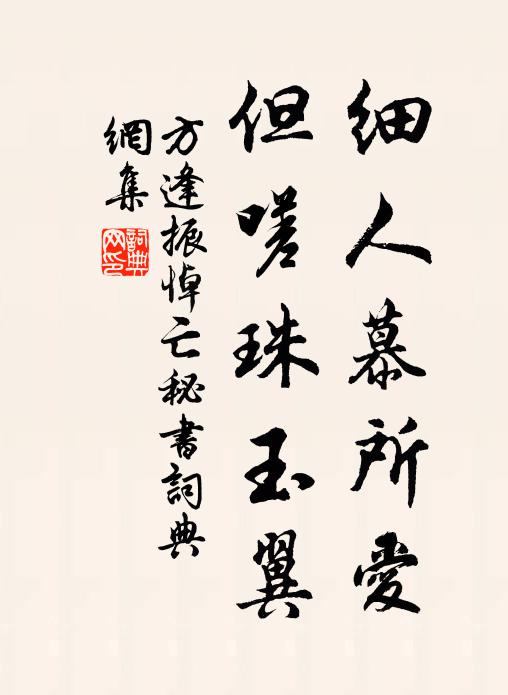 细人慕所爱
但嗟珠玉翼
方逢振悼亡秘书詞典
網集
詞典網印